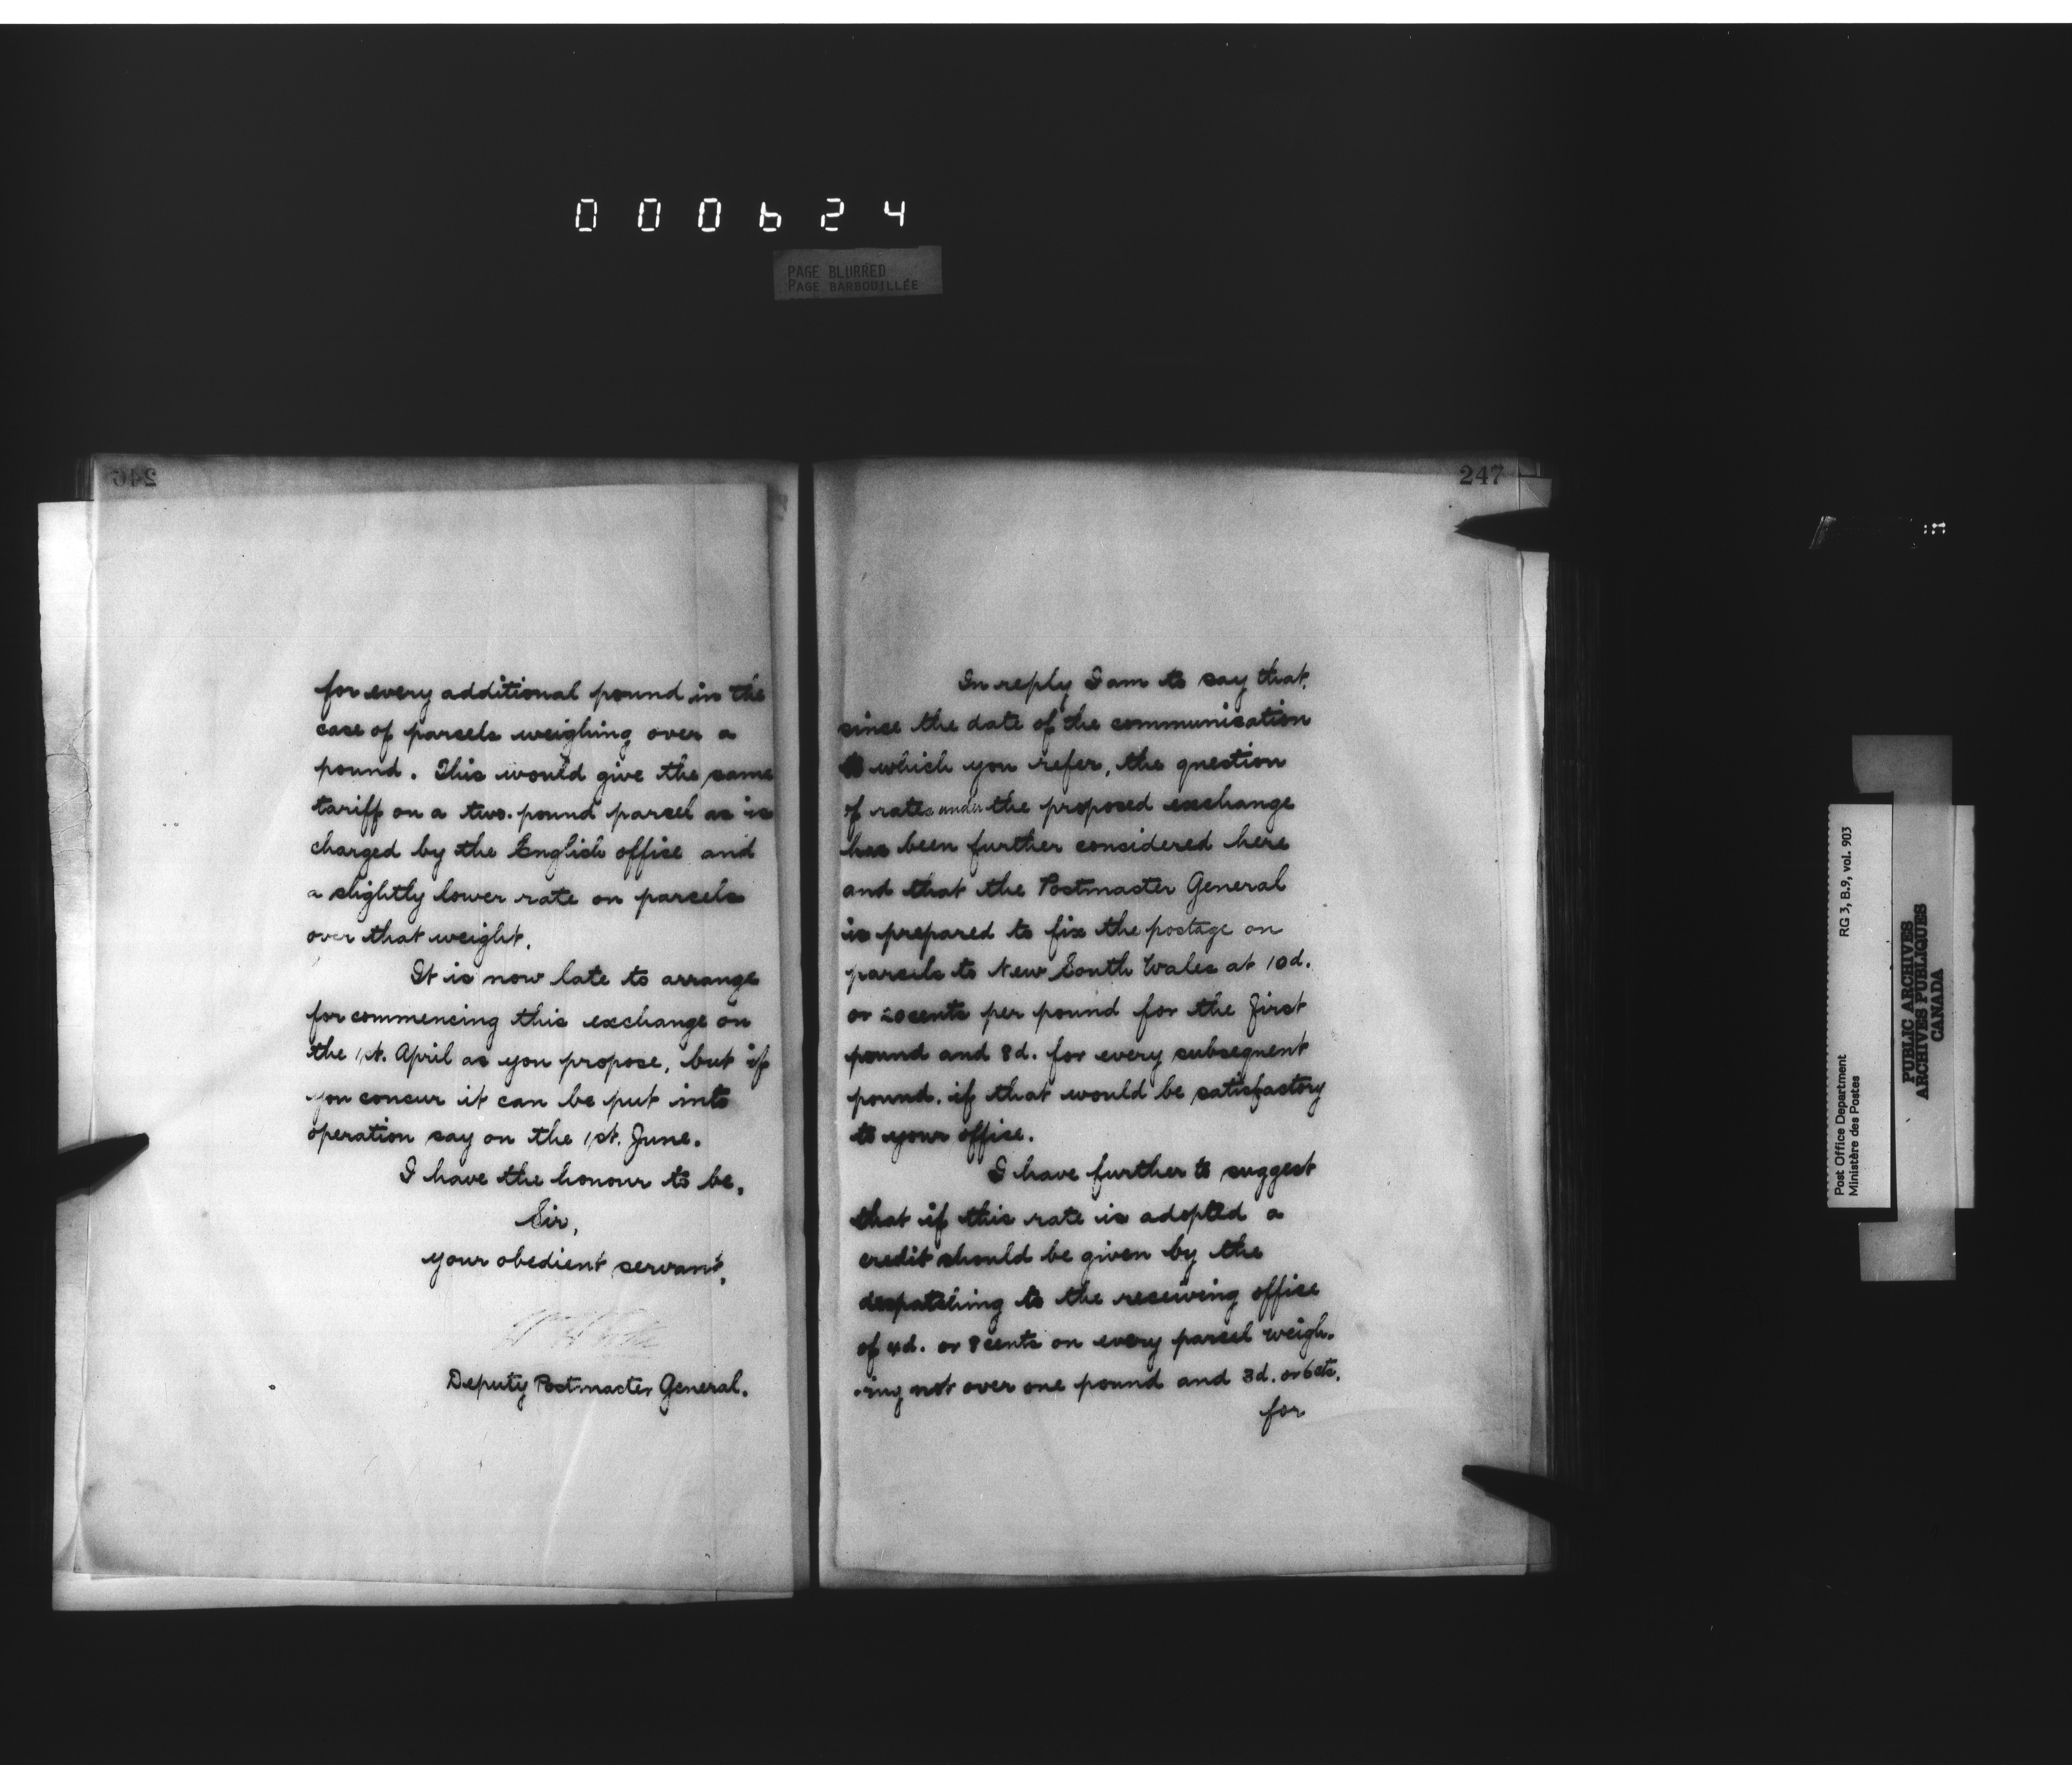 000624
PAGE BLURRED
PAGE BARBOUILLÉE
246
for every additional pound in the
case of parcels weighing over a
pound. This would give the same
tariff on a two-pound parcel as is
charged by the English office and
a slightly lower rate on parcels
over that weight.
It is now late to arrange
for commencing this exchange on
the 1st. April as you propose, but if
you concur it can be put into
operation say on the 1st. June.
I have the honour to be,
Sir,
your obedient servant,
Deputy Postmaster General.
247
In reply I am to say that,
since the date of the communication
to which you refer, the question
of rates under the proposed exchange
has been further considered here
and that the Postmaster General
is prepared to fix the postage on
parcels to New South Wales at 10d.
or 20 cents per pound for the first
pound and 8d. for every subsequent
pound, if that would be satisfactory
to your office.
I have further to suggest
that if this rate is adopted a
credit should be given by the
despatching to the receiving office
of 4d. or 8 cents on every parcel weigh-
-ing not over one pound and 3d. or 6 cts.
for
Post Office Department
Ministère des Postes
RG 3, B.9, vol. 903
PUBLIC ARCHIVES
ARCHIVES PUBLIQUES
CANADA